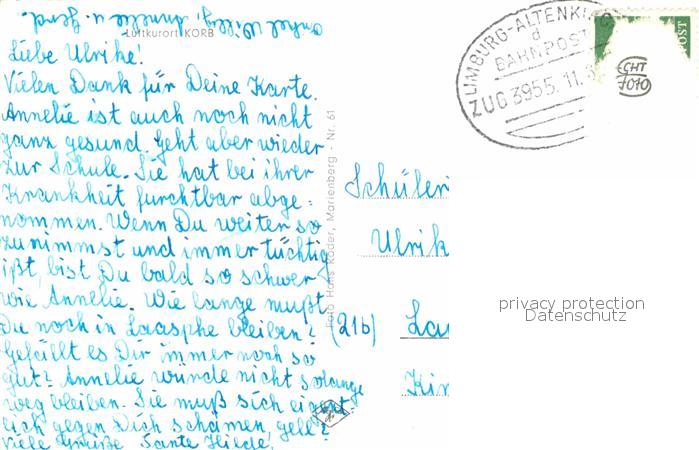 Onkel Willy, Annelie u. Gerd.
Luftkurort KORB
Liebe Ulrike!
Vielen Dank für Deine Karte.
Annelie ist auch noch nicht
ganz gesund. Geht aber wieder
zur Schule. Sie hat bei ihrer
Krankheit furchtbar abge=
nommen. Wenn Du weiter so
zunimmst und immer tüchtig
ißt, bist Du bald so schwer
wie Annelie. Wie lange mußt
Du noch in Laasphe bleiben?
Gefällt es Dir immer noch so
gut? Annelie würde nicht solange
weg bleiben. Sie muß sich eigent-
lich gegen Dich schämen, gell?
Viele Grüße Tante Hilde,
Foto Hans Röder, Marienberg - Nr. 61
LIMBURG-ALTENKI
d
BAHNPOST
ZUG 3955. 11.
POST
GHT
FOTO
Schüler
Ulrik
(21b) Laa
Kin
privacy protection
Datenschutz